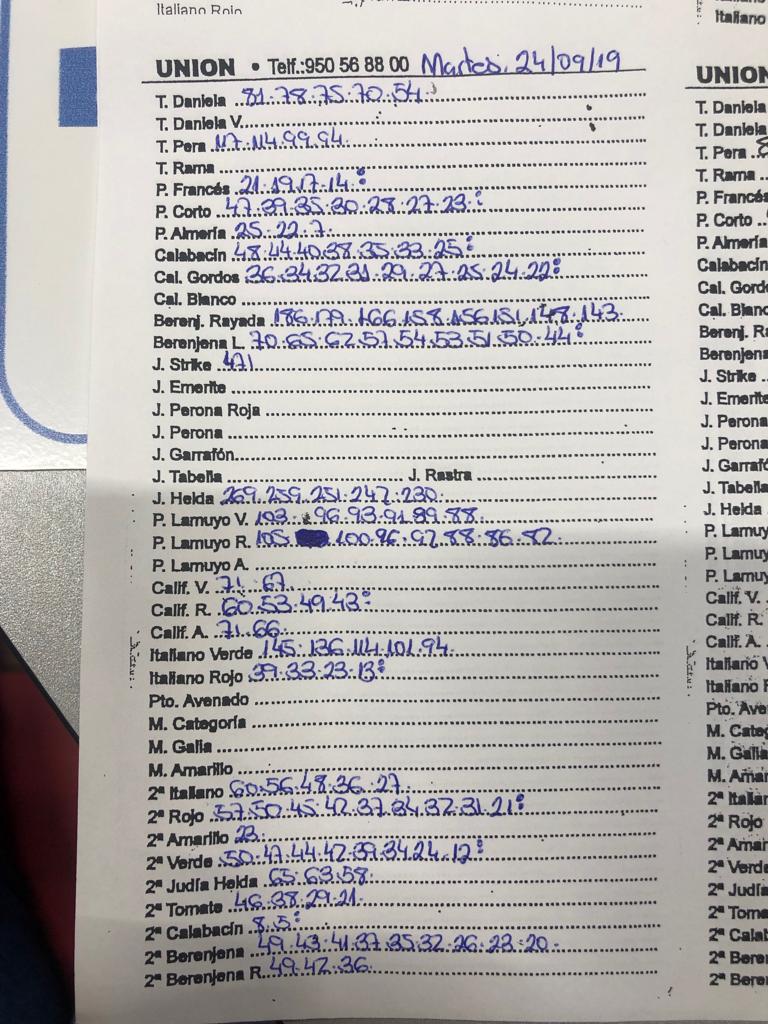 Italiano Rojo
UNION • Telf.:950 56 88 00 Martes, 24/09/19
T. Daniela 81.78.75.70.54
T. Daniela V.
T. Pera 117.114.99.94
T. Rama
P. Francés 21.19.17.14:
P. Corto 47.39.35.30.28.27.23:
P. Almería 25.22.7
Calabacín 48.44.40.38.35.33.25:
Cal. Gordos 36.34.32.31.29.27.25.24.22:
Cal. Blanco
Berenj. Rayada 186.179.166.158.156.151.148.143
Berenjena L. 70.65.62.57.54.53.51.50.44:
J. Strike 471
J. Emerite
J. Perona Roja
J. Perona
J. Garrafón
J. Tabella J. Rastra
J. Helda 269.259.251.247.230
P. Lamuyo V. 103.96.93.91.89.88
P. Lamuyo R. 105 100.96.92.88.86.82
P. Lamuyo A.
Calif. V. 71.67
Calif. R. 60.53.49.43:
Calif. A. 71.66
Italiano Verde 145.136.114.101.94
Italiano Rojo 39.33.23.13:
Pto. Avenado
M. Categoría
M. Galia
M. Amarillo
2ª Italiano 60.56.48.36.27
2ª Rojo 57.50.45.42.37.34.32.31.21:
2ª Amarillo 23
2ª Verde 50.47.44.42.39.34.24.12:
2ª Judía Helda 65.63.58
2ª Tomate 46.38.29.21
2ª Calabacín 8.5:
2ª Berenjena 49.43.41.37.35.32.26.23.20
2ª Berenjena R. 49.42.36
Italiano
UNION
T. Daniela
T. Daniela
T. Pera
T. Rama
P. Francés
P. Corto
P. Almería
Calabacín
Cal. Gord
Cal. Blanc
Berenj. Ra
Berenjena
J. Strike
J. Emerite
J. Perona
J. Perona
J. Garrafó
J. Tabella
J. Helda
P. Lamuy
P. Lamuy
P. Lamuy
Calif. V.
Calif. R.
Calif. A.
Italiano V
Italiano R
Pto. Ave
M. Categ
M. Galia
M. Amar
2ª Italia
2ª Rojo
2ª Amar
2ª Verde
2ª Judí
2ª Toma
2ª Calab
2ª Bere
2ª Bere